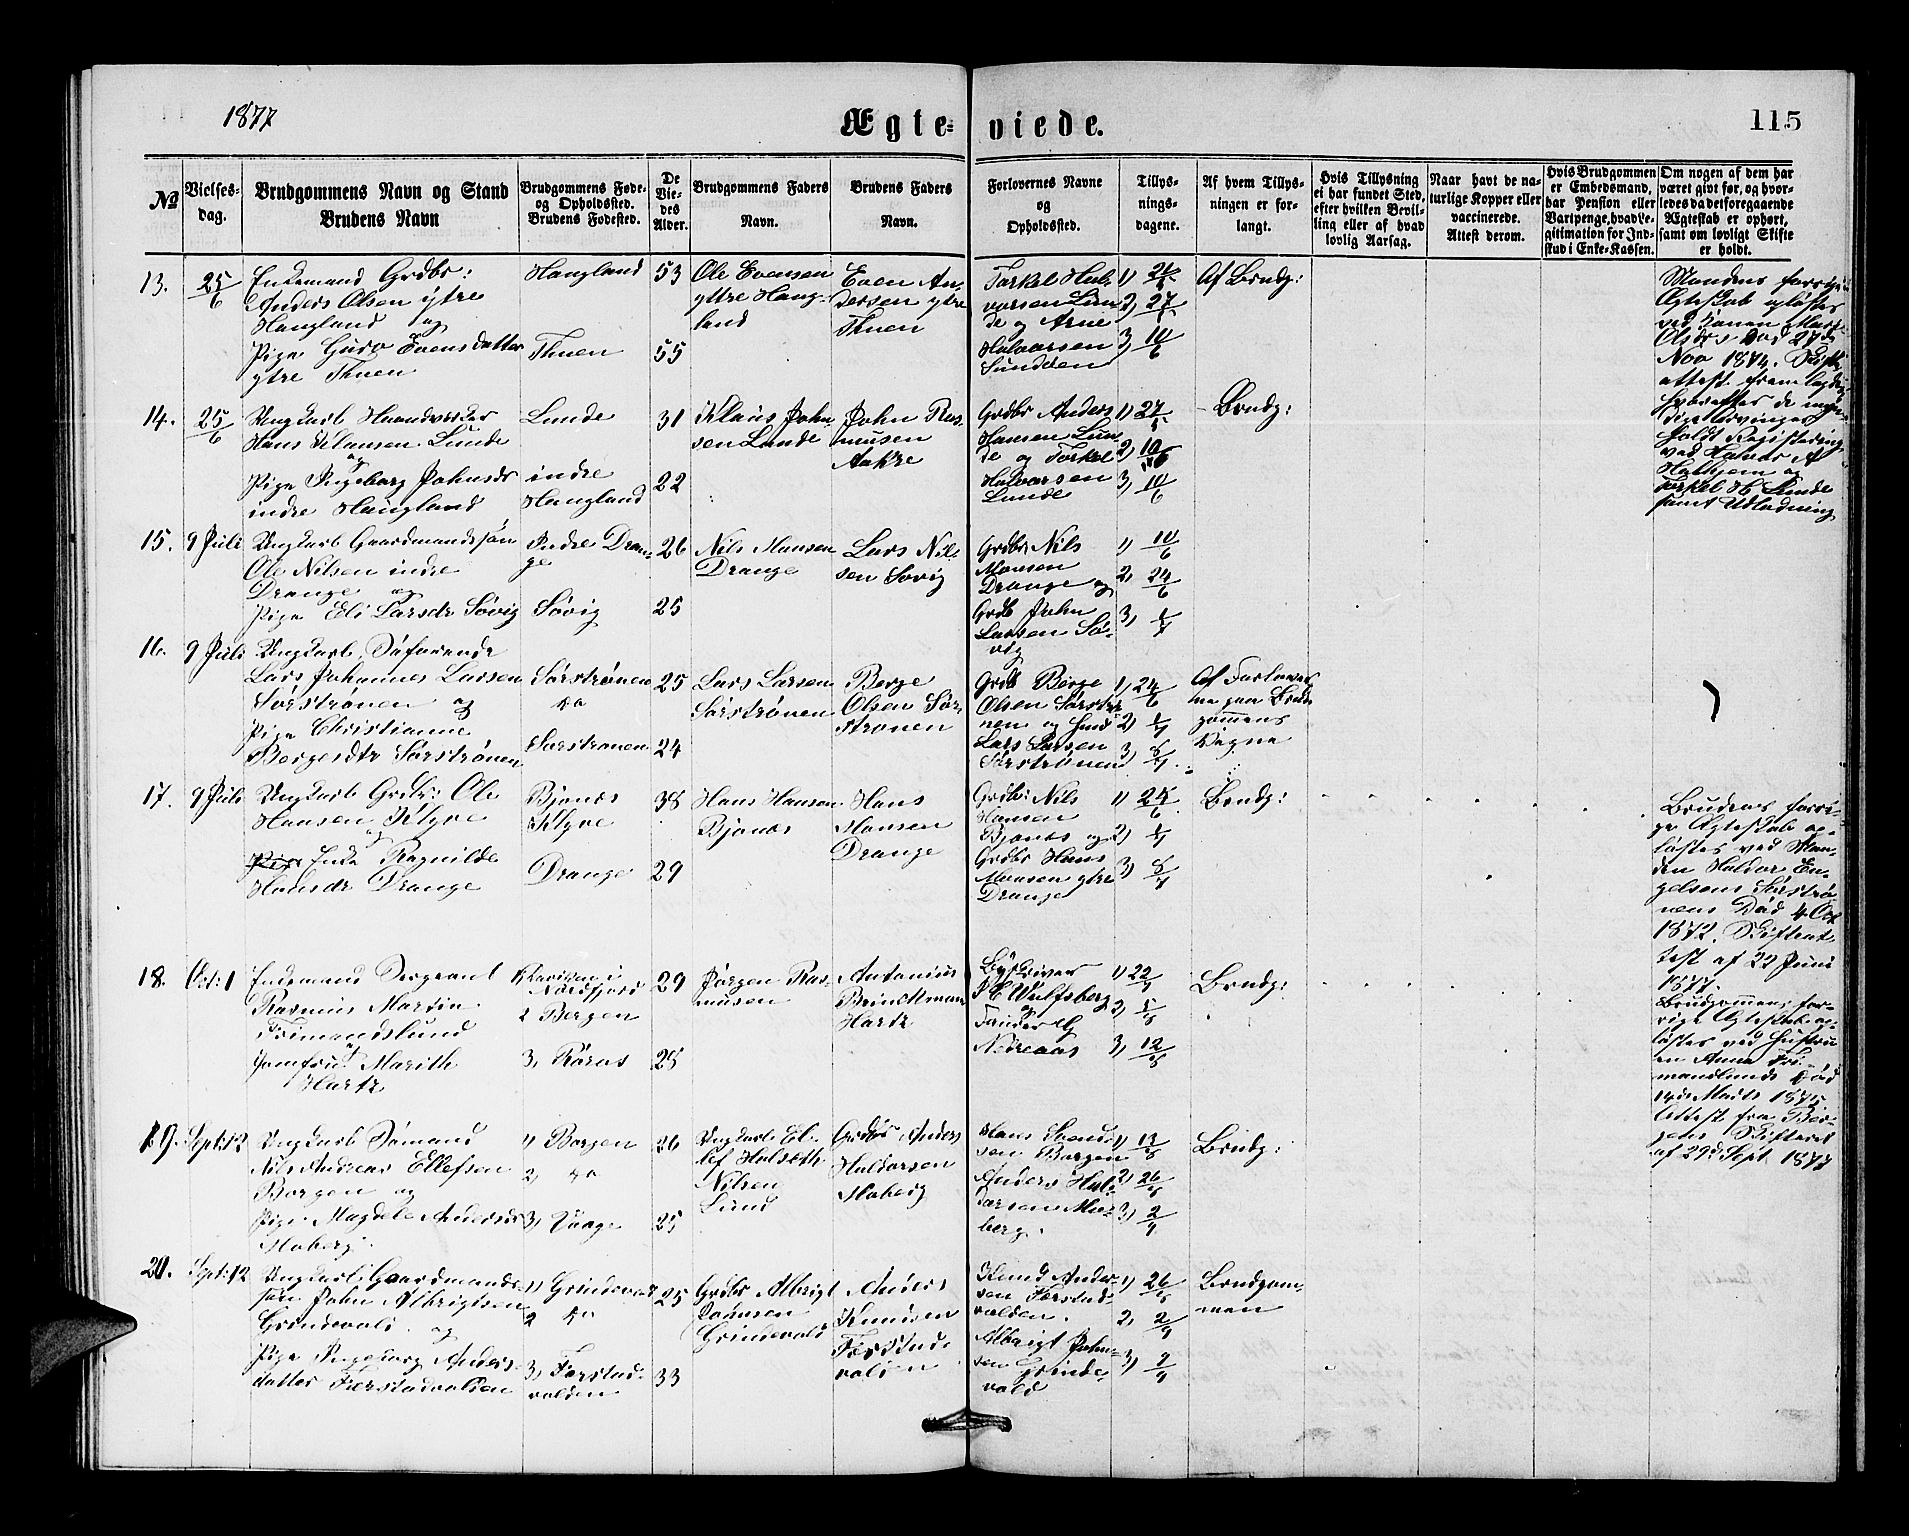 1877
Ægte- viede.
115
№
Vielses-
dag.
Brudgommens Navn og Stand
Brudens Navn
Brudgommens Føde-
og Opholdssted.
Brudens Fødested.
De
Vie-
des
Alder.
Brudgommens Faders
Navn.
Brudens Faders
Navn.
Forlovernes Navne
og
Opholdssted.
Tillys-
nings-
dagene.
Af hvem Tillys-
ningen er for-
langt.
Hvis Tillysning
ei har fundet Sted,
efter hvilken Bevil-
ling eller af hvad
lovlig Aarsag.
Naar havt de na-
turlige Kopper eller
vaccinerede.
Attest derom.
Hvis Brudgommen
er Embedsmand,
har Pension eller
Vartpenge, hvad Le-
gitimation for Ind-
skud i Enke-Kassen.
Om nogen af dem har
været givt før, og hvor-
ledes da det foregaaende
Ægteskab er ophørt,
samt om lovligt Skifte
er holdt.
13.
25/6
Enkemand Grdbr:
Anders Olsen ytre
Haugland og
Pige Guro Evensdatter
ytre Thuen
Haugland
Thuen
53
55
Ole Evensen
yttre Haug-
land
Even An-
dersen ytre
Thuen
Torkel Hal-
vorsen Lun-
de og Arne
Halvorsen
Sundden
1) 21/5
2) 27/5
3) 10/6
Af Brudg:
Mandens forrige
Ægteskab opløstes
ved Konen
Olsdrs Død 27de
Nov 1874. Skifte-
attest fremlagdes
14.
25/6
Ungkarl Haandverker
Hans Klausen Lunde
og
Pige Ingeborg Johnsdr
indre Haugland
Lunde
indre
Haugland
31
22
Klaus John-
sen Lunde
John Ras-
musen
Aakre
Grdbr Anders
Hansen Lun-
de og Torkel
Halvorsen
Lunde
1) 27/5
2) 10/6
3) 10/6
Brudg:
ved Halvor A
Halhjem og
Torkel H Lunde
samt Udlodning
15.
9 Juli
Ungkarl Gaardmandssøn
Ole Nilsen indre
Drange og
Pige Eli Larsdr Søvig
Indre Dran-
ge
Søvig
26
25
Nils Monsen
Drange
Lars Nil-
sen Sovig
Grdbr Nils
Monsen
Drange og
Grdb John
Larsen Sø-
vig
1) 10/6
2) 24/6
3) 1/7
16.
9 Juli
Ungkarl, Søfarende
Lars Johannes Larsen
Sørstrønen og
Pige Christianne
Bergesdtr Sørstrønen
Sørstrønen
do
Sorstronen
25
24
Lars Larsen
Sørstrønen
Berge
Olsen Sør-
stronen
Grdb Berge
Olsen Sørstrø-
nen og Husd
Lars Larsen
Sørstrønen
1) 24/6
2) 1/7
3) 8/7
Af Forlover-
ne paa Brud-
gomens
Vegne
17.
9 Juli
Ungkarl Grdbr: Ole
Hansen Klyve
og
Pige Enke Ragnilde
Hansdr Drange
Bjonæs
Klyve
Drange
38
29
Hans Hansen
Bjonæs
Hans
Monsen
Drange
Grdbr: Nils
Hansen
Bjonæs og
Grdbr Hans
Monsen ytre
Drange
1) 24/6
2) 1/7
3) 8/7
Brudg:
Brudens forri-
ge Ægteskab op-
løstes ved Man-
den Haldor En-
gelsens Sørstrø-
nens Død 4 Oct
1872. Skifteat-
test af 22 Juni
1877.
18.
Oct: 1
Enkemand Sergeant
Rasmus Martin
Frimandslund
og
Jomfru Marith
Hartz
1) Davigen i
Nordfjord
2 Bergen
3, Røros
29
25
Jørgen Ras-
musen
Antonius
Brinchmann
Hartz
Byskriver
J C Wulfsberg
og
Nedreaas
1) 22/7
2) 5/8
3) 12/8
Brudg:
Brudgomens for-
rige Ægteskab op-
løstes ved Hustru-
en Anna Fri-
mandslunds Død
14de Marts 1875
Attest fra Ber-
gens Skifteret
af 29d: Sept 1877
19.
Sept: 12
Ungkarl Sømand
Nils Andreas Ellefsen
Borgen og
Pige Magdele Andersdr
Moberg.
1) Borgen
2, do
3, Vaage
26
25
Ungkarl El-
lef Halseth
Nilsen
Lund
Grdbr Anders
Haldorsen
Moberg
Hans Svend-
sen Borgen
Anders Hal-
dorsen Mo-
berg.
1) 12/8
2) 26/8
3) 2/9
Brudg:
20.
Sept: 12
Ungkarl Gaardmands-
søn John Albrigtsen
Grindevold.
og
Pige Ingeborg Anders-
datter Færstadvolden
1) Grindevold
2 do
3, Forstad-
volden
25
33
Grdbr Albrigt
Johnsen
Grindevold
Anders
Knudsen
Forstad-
volden
Knud Ander-
sen Færstad-
volden.
Albrigt John-
sen Grinde-
vold
1) 26/8
2, 2/9
3) 9/9
Brudgom-
men